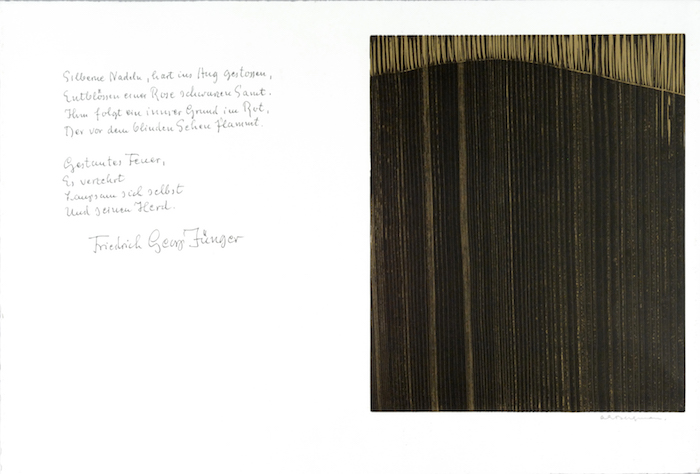 Silberne Nadeln, hart ins Aug gestossen,
Entblössen einer Rose schwarzen Samt.
Ihm folgt ein innrer Grund im Rot,
Der vor dem blinden Sehen flammet.
Gestautes Feuer,
Es verzehrt
Langsam sich selbst
Und seinen Herd.
Friedrich Georg Jünger